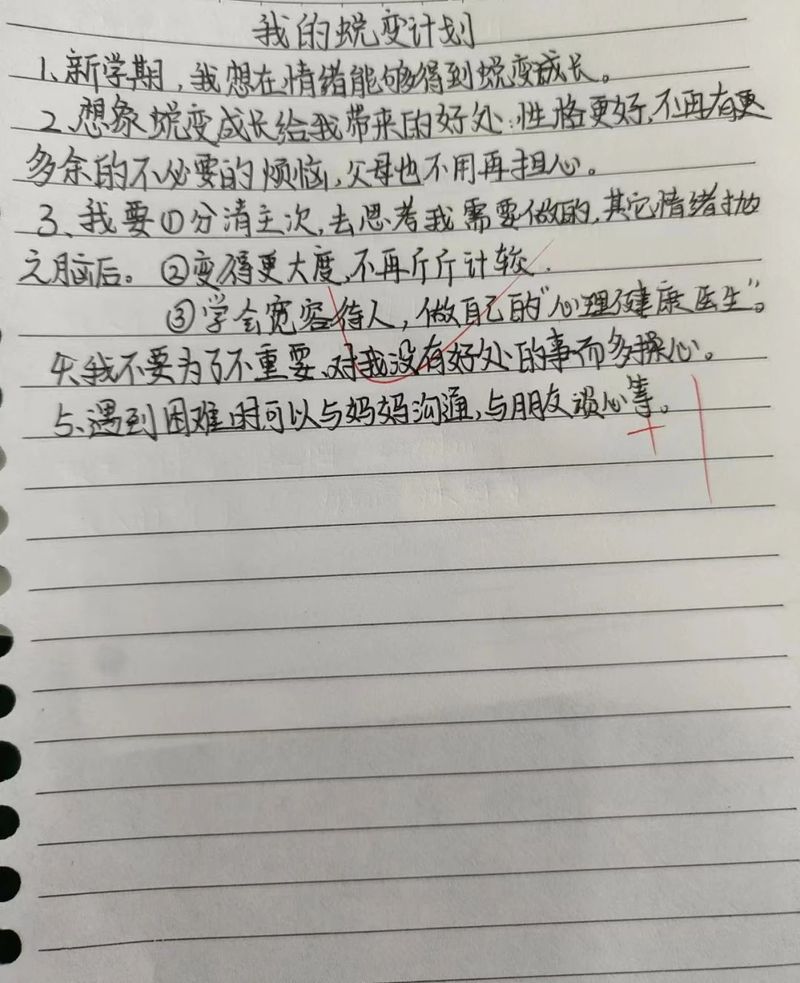 我的蜕变计划
1、新学期，我想在情绪能够得到蜕变成长。
2、想象蜕变成长给我带来的好处：性格更好，不再有更
多余的不必要的烦恼，父母也不用再担心。
3、我要①分清主次，去思考我需要做的，其它情绪抛
之脑后。②变得更大度，不再斤斤计较．
③学会宽容待人，做自己的“心理健康医生”。
4、我不要为了不重要、对我没有好处的事而多操心。
5、遇到困难时可以与妈妈沟通，与朋友谈心等。